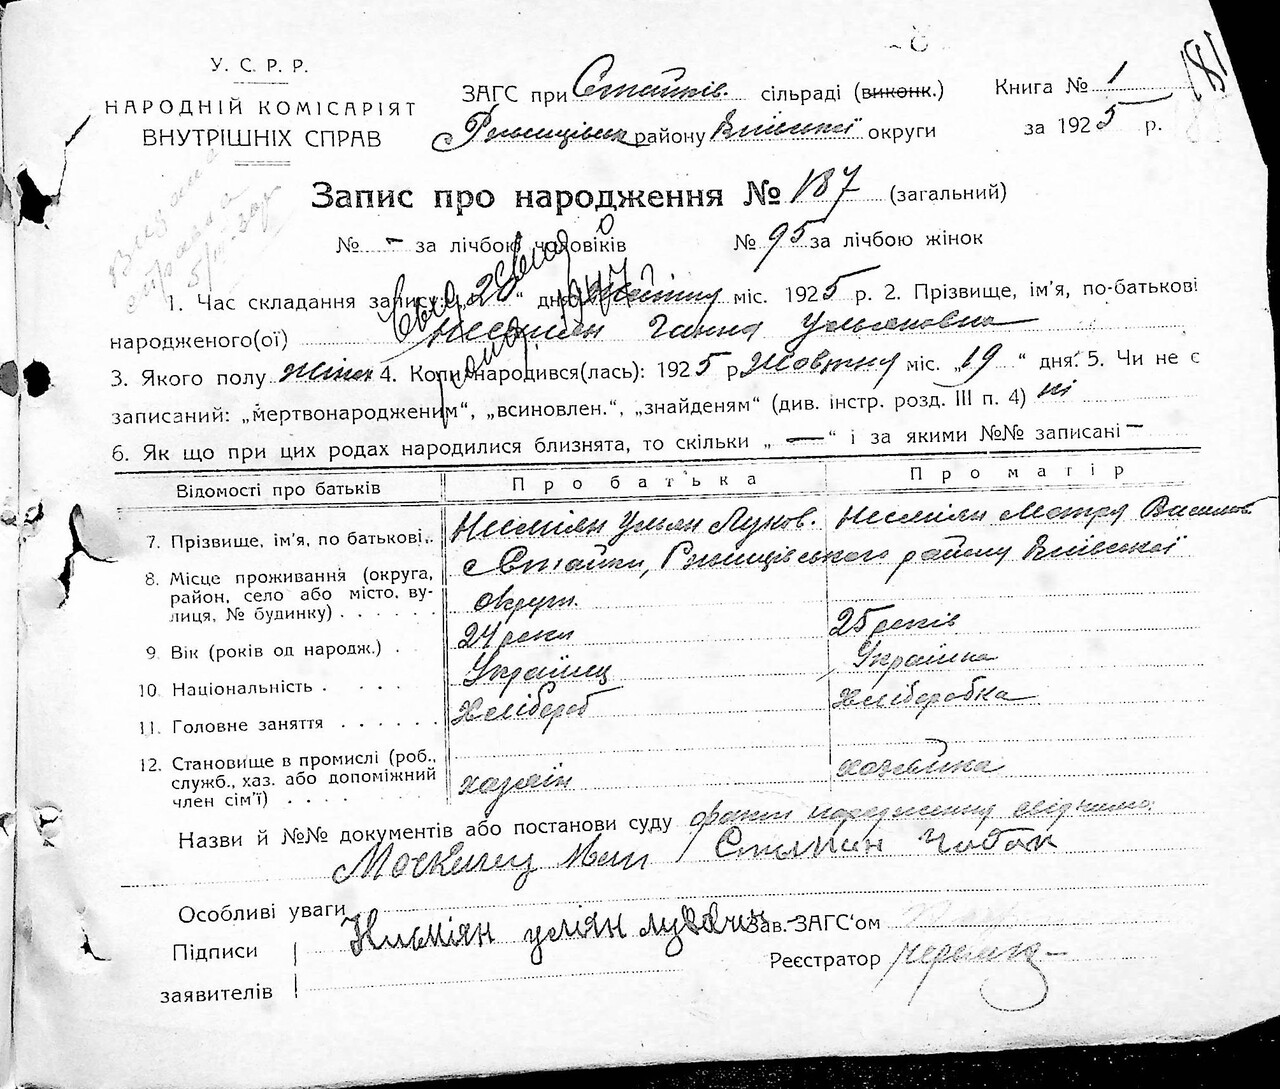 У. С. Р. Р.
НАРОДНІЙ КОМІСАРІЯТ
ВНУТРІШНІХ СПРАВ
ЗАГС при Стайків. сільраді (виконк.)
Ржищівськ району Київської округи
Книга № 1
за 1925 р.
181
Запис про народження № 187 (загальний)
№ - за лічбою чоловіків № 95 за лічбою жінок
1. Час складання запису: „20“ дня Жовтня міс. 1925 р. 2. Прізвище, ім'я, по-батькові
народженого(ої) Несміян Ганна Ульяновна
3. Якого полу жіноч 4. Коли народився(лась): 1925 р. Жовтня міс. „19“ дня. 5. Чи не є
записаний: „мертвонародженим“, „всиновлен.“, „знайденям“ (див. інстр. розд. III п. 4) ні
6. Як що при цих родах народилися близнята, то скільки „—“ і за якими №№ записані —
Відомості про батьків
Про батька
Про матір
7. Прізвище, ім'я, по батькові.
Несміян Ульян Луков.
Несміян Мотря Васильов
8. Місце проживання (округа, район, село або місто, вулиця, № будинку)
с Стайки, Ржищівського району Київської
округи.
9 Вік (років од народж.)
24 роки
25 років
10. Національність
Українец
Українка
11. Головне заняття
Хлібороб
Хліборобка
12. Становище в промислі (роб., служб., хаз. або допоміжний член сім'ї)
хазяін
хазяйка
Назви й №№ документів або постанови суду факт народження свідчимо:
Степан Чобак
Особливі уваги
Підписи
заявителів
Нисміян уліян лукович
Зав. ЗАГС'ом
Реєстратор